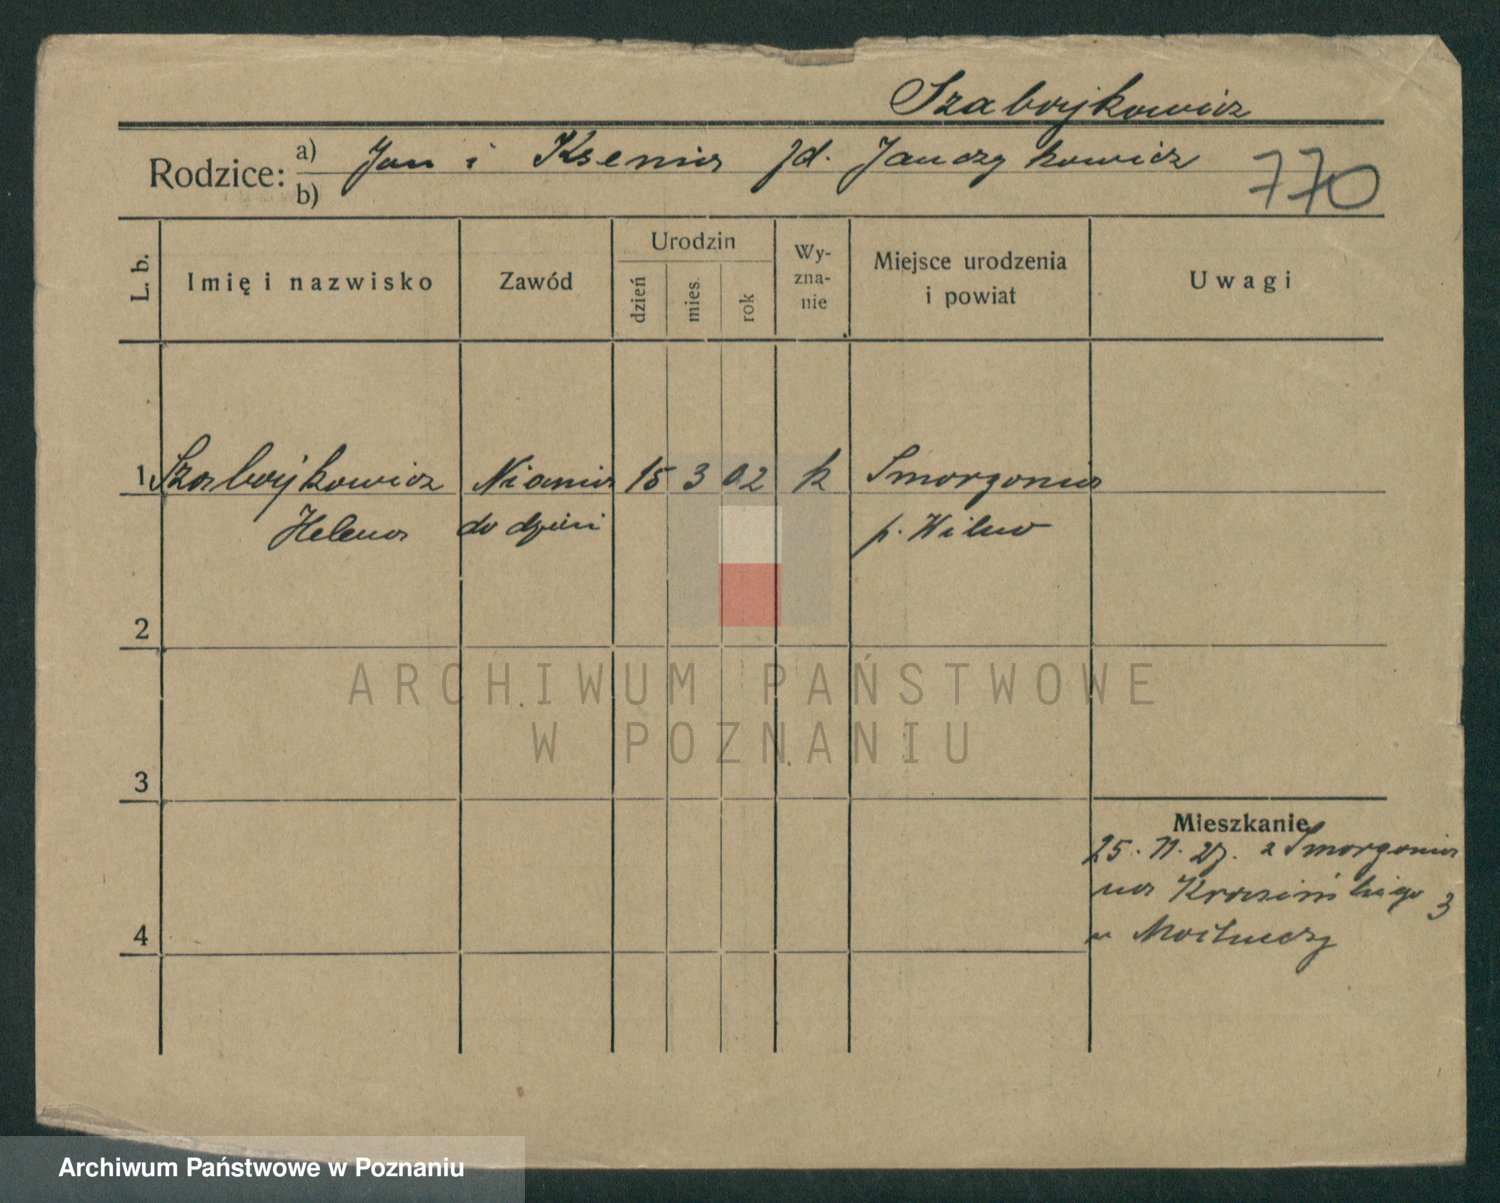 Szabojkowicz
Rodzice: a) Jan i Ksenia Jd. Janczykowicz
b)
770
L. b.
Imię i nazwisko
Zawód
Urodzin
dzień
mies.
rok
Wy-
zna-
nie
Miejsce urodzenia
i powiat
Uwagi
1 Szabojkowicz Niania 15 3 02 k Smorgonia
Helena do dzieci p. Wilno
2
3
4
Mieszkanie
25. 11. 27. z Smorgonia
na Krasińskiego 3
u
ARCHIWUM PAŃSTWOWE
W POZNANIU
Archiwum Państwowe w Poznaniu